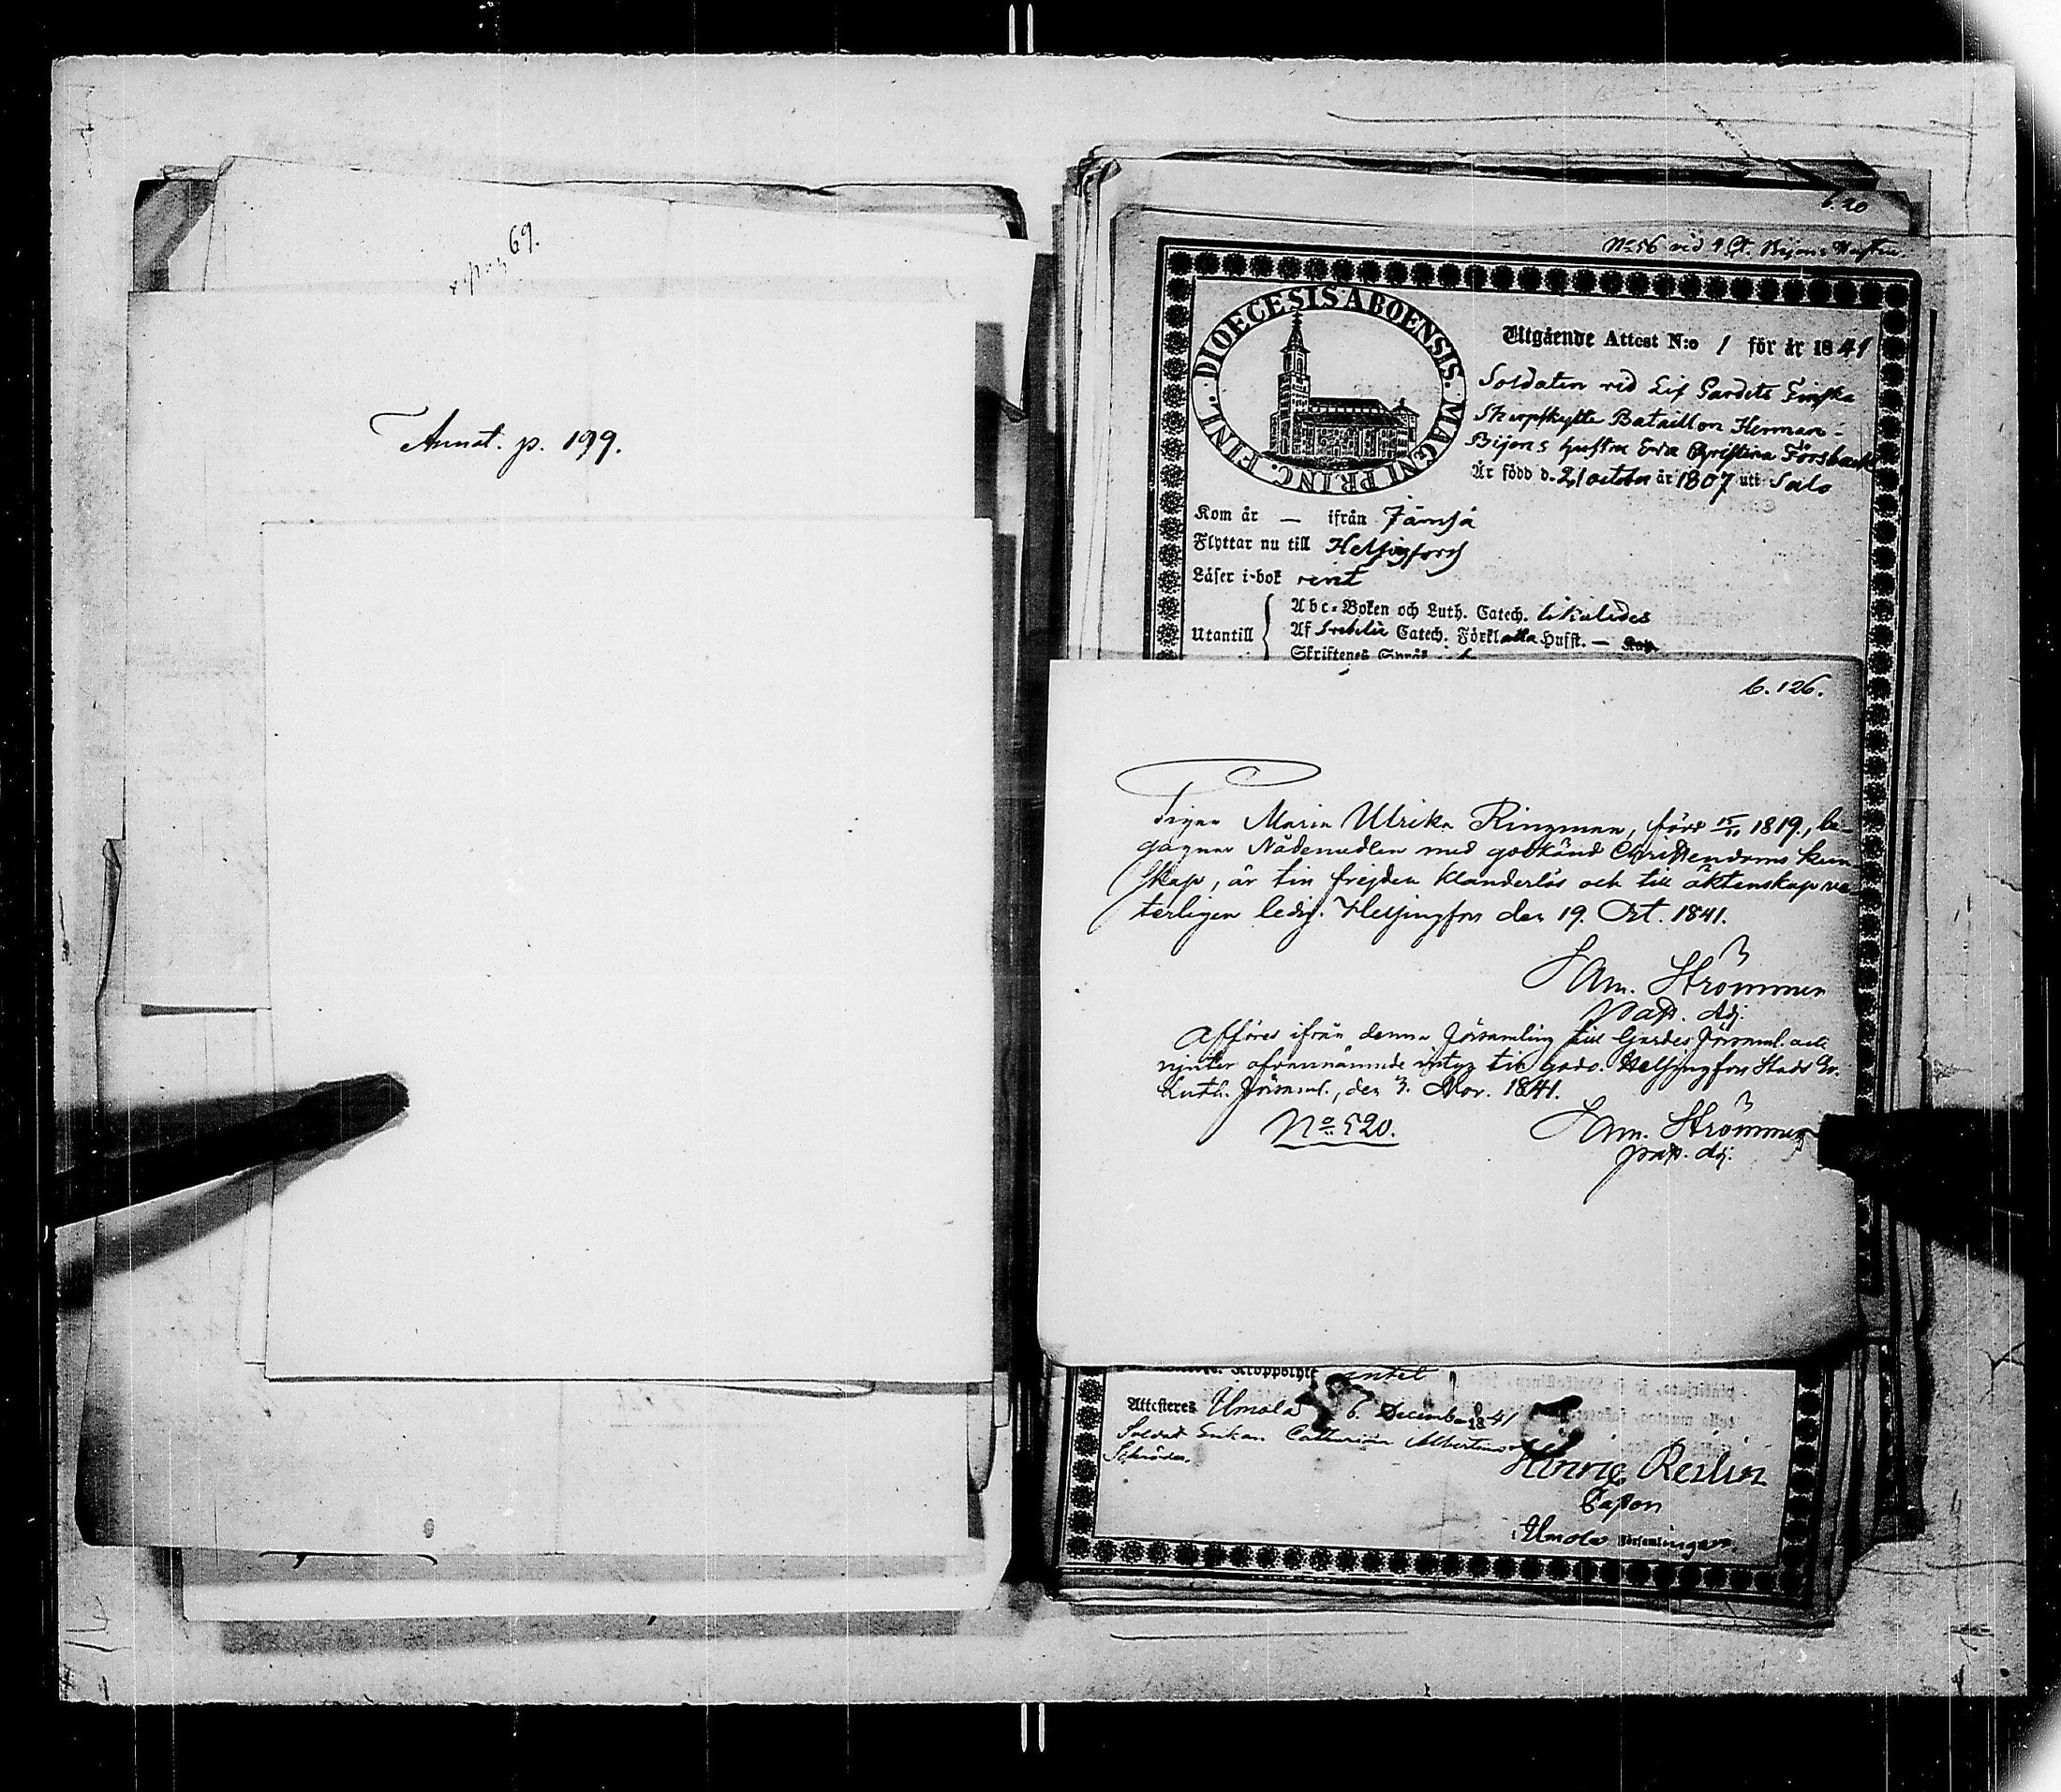 69.
Annot. p. 199.
b. 20
No 56 vid 4 Ct. Bijons Hustru.
DIOECESIS ABOENSIS. MAGNI PRINC. FINL.
Utgående Attest N:o 1 för år 1841
Soldaten vid Lif Gardets Finska
Skarpskytte Bataillon Herman
Bijons hustru Eva Christina Forsback
Är född d. 21 october år 1807 uti Salo
Kom år — ifrån Jämsä
Flyttar nu till Helsingfors
Läser i-bok rent
Utantill
Abc-Boken och Luth. Catech. likaledes
Af Svebelii Catech. Förkl. alla Hufst. —
Skriftenes Språk
b. 126.
Pigan Maria Ulrika Ringman, född 15/11 1819, be-
gagnar Nådemedlen med godkänd Christendoms kun-
skap, är till frejden klanderlös och till äktenskap ve-
terligen ledig. Helsingfors den 19. Oct. 1841.
Hm. Strömmer
Past. Adj.
Afföres ifrån denna församling till Gardes församl. och
njuter ofvannämnde intyg till godo. Helsingfors Stads Ev.
Luth. församl., den 3. Nov. 1841.
No 520.
Hm. Strömmer
past. adj.
Attesteres Urjala 6. December 1841
Soldat Enkan Catharina Albertina
Schröder.
Henric Reslin
Capon
i Urjala Församlingen.